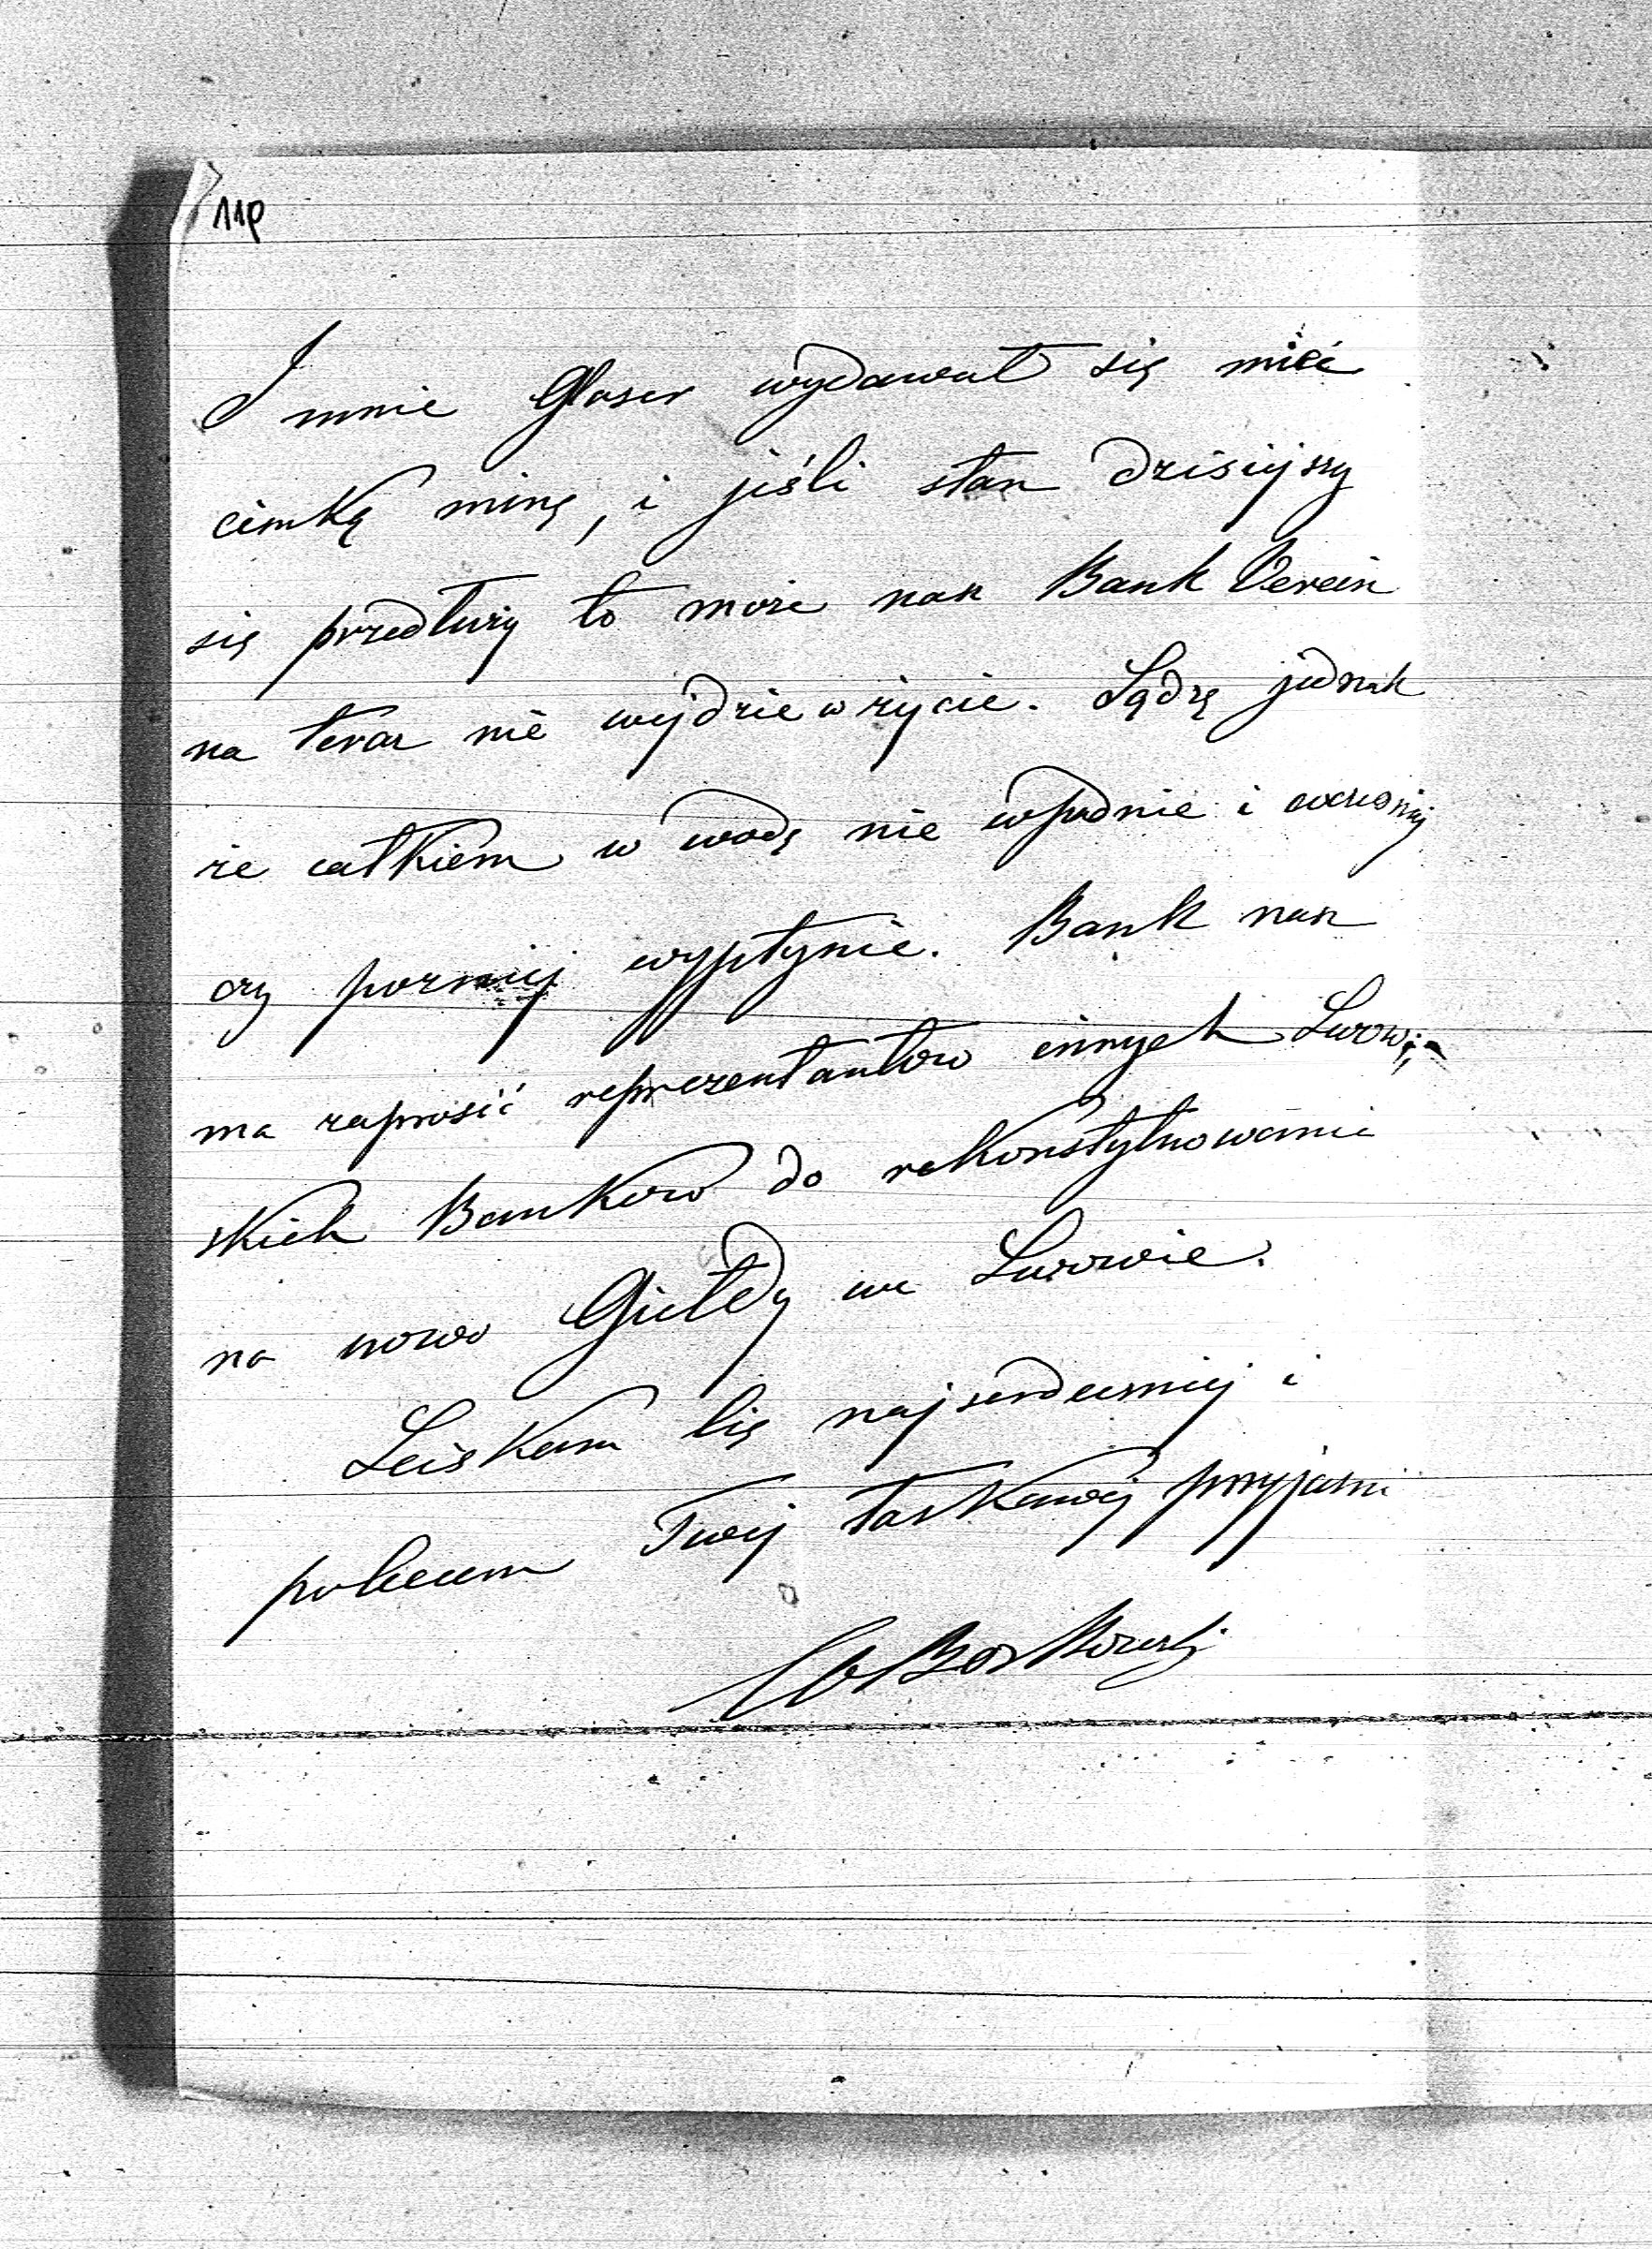 119
I mnie Glaser wydawał się mieć
cienką minę, i jeśli stan dzisiejszy
się przedłuży to może nasz Bank Verein
na teraz nie wejdzie w życie. Sądzę jednak
że całkiem w wodę nie wpadnie i wcześniej
czy pozniej wypłynie. Bank nasz
ma zaprosić reprezentantów innych Lwow
skich Banków do rekonstytuowania
na nowo Giełdy we Lwowie.
Sciskam Cię najserdeczniej i
polecam Twej łaskawej przyjaźni
Borkowski